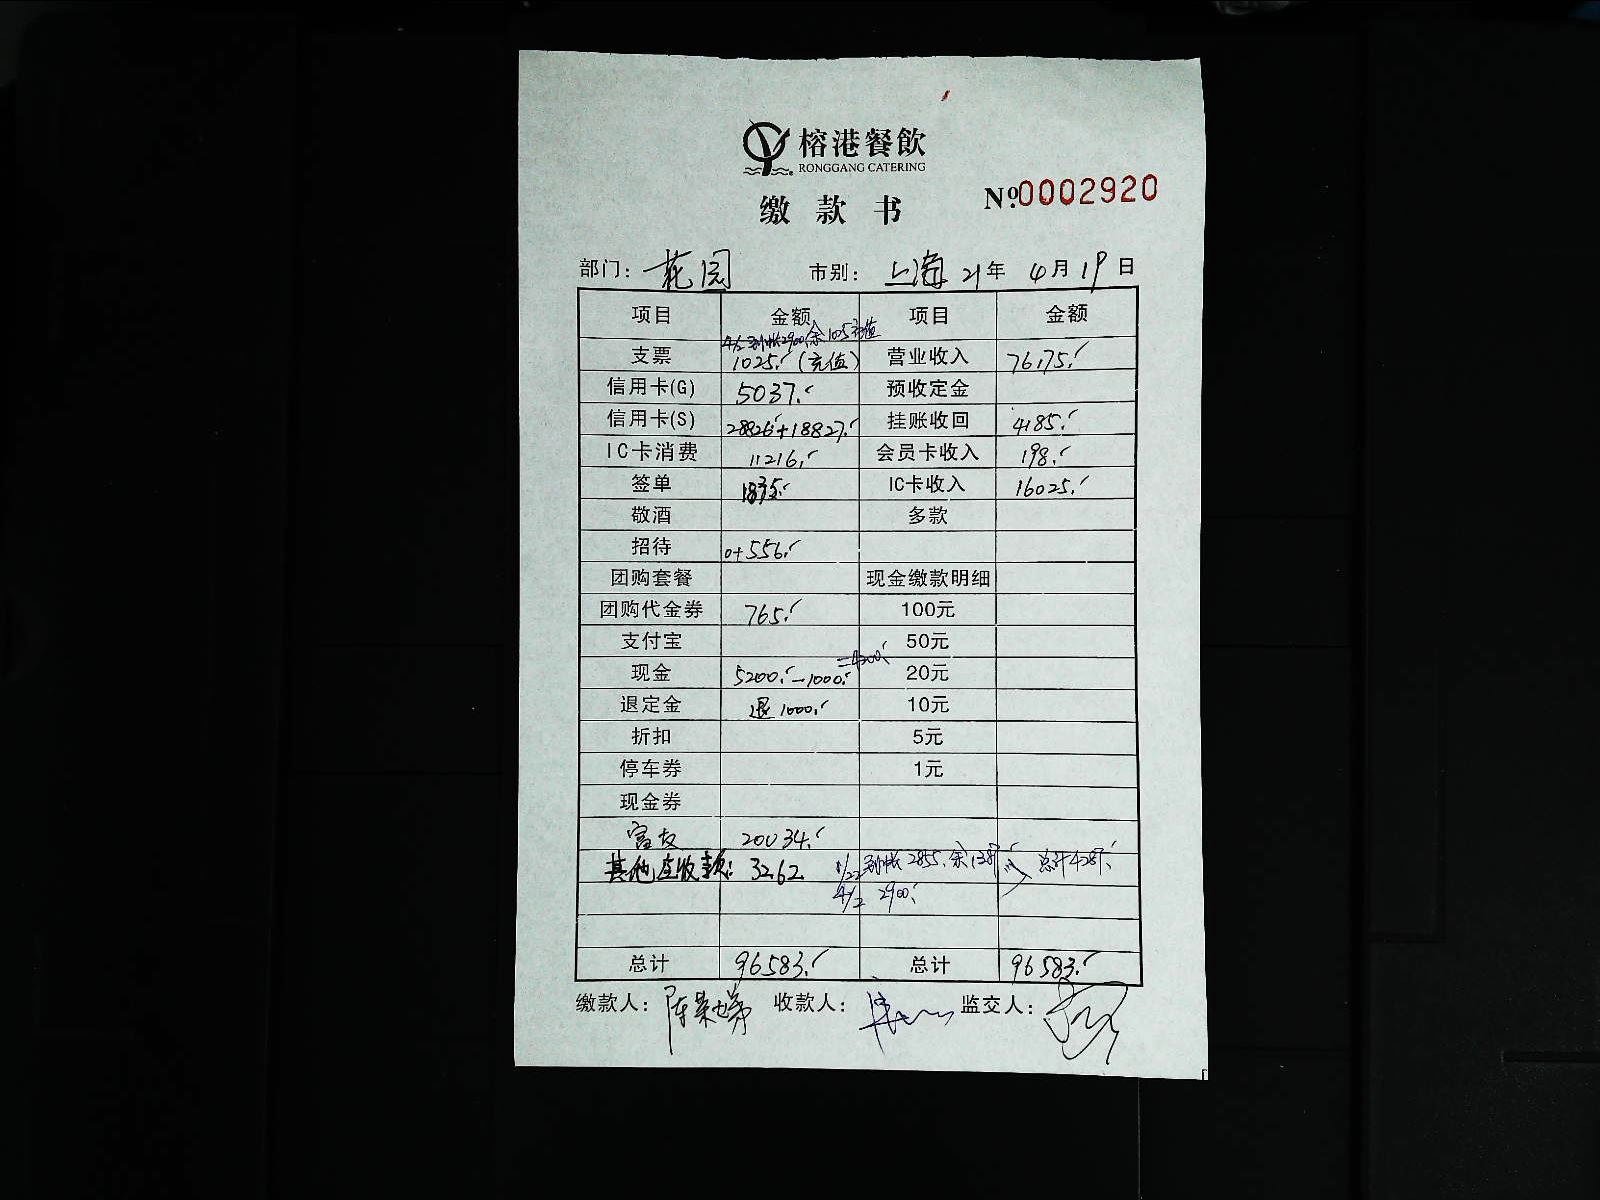 榕港餐飲
RONGGANG CATERING
缴款书
№0002920
部门: 花园 市别: 上海 21年 4月 19日
项目 金额 项目 金额
支票 1025.(充值) 营业收入 76175.
信用卡(G) 5037. 预收定金
信用卡(S) 28826+18827. 挂账收回 4185.
IC卡消费 11216. 会员卡收入 198.
签单 1835. IC卡收入 16025.
敬酒 多款
招待 0+556.
团购套餐 现金缴款明细
团购代金券 765. 100元
支付宝 50元
现金 5200.-1000. =4200. 20元
退定金 退1000. 10元
折扣 5元
停车券 1元
现金券
富友 20034.
其他应收款: 3262. 2855.余1387 总计4287.
4/2 2900.
总计 96583. 总计 96583.
缴款人: 收款人: 监交人: